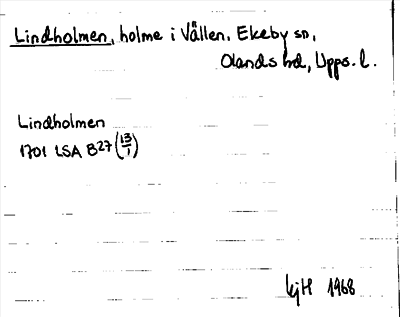 Lindholmen, holme i Vällen, Ekeby sn,
Olands hd, Upps. l.
Lindholmen
1701 LSA B27 (13/1)
KjH 1968